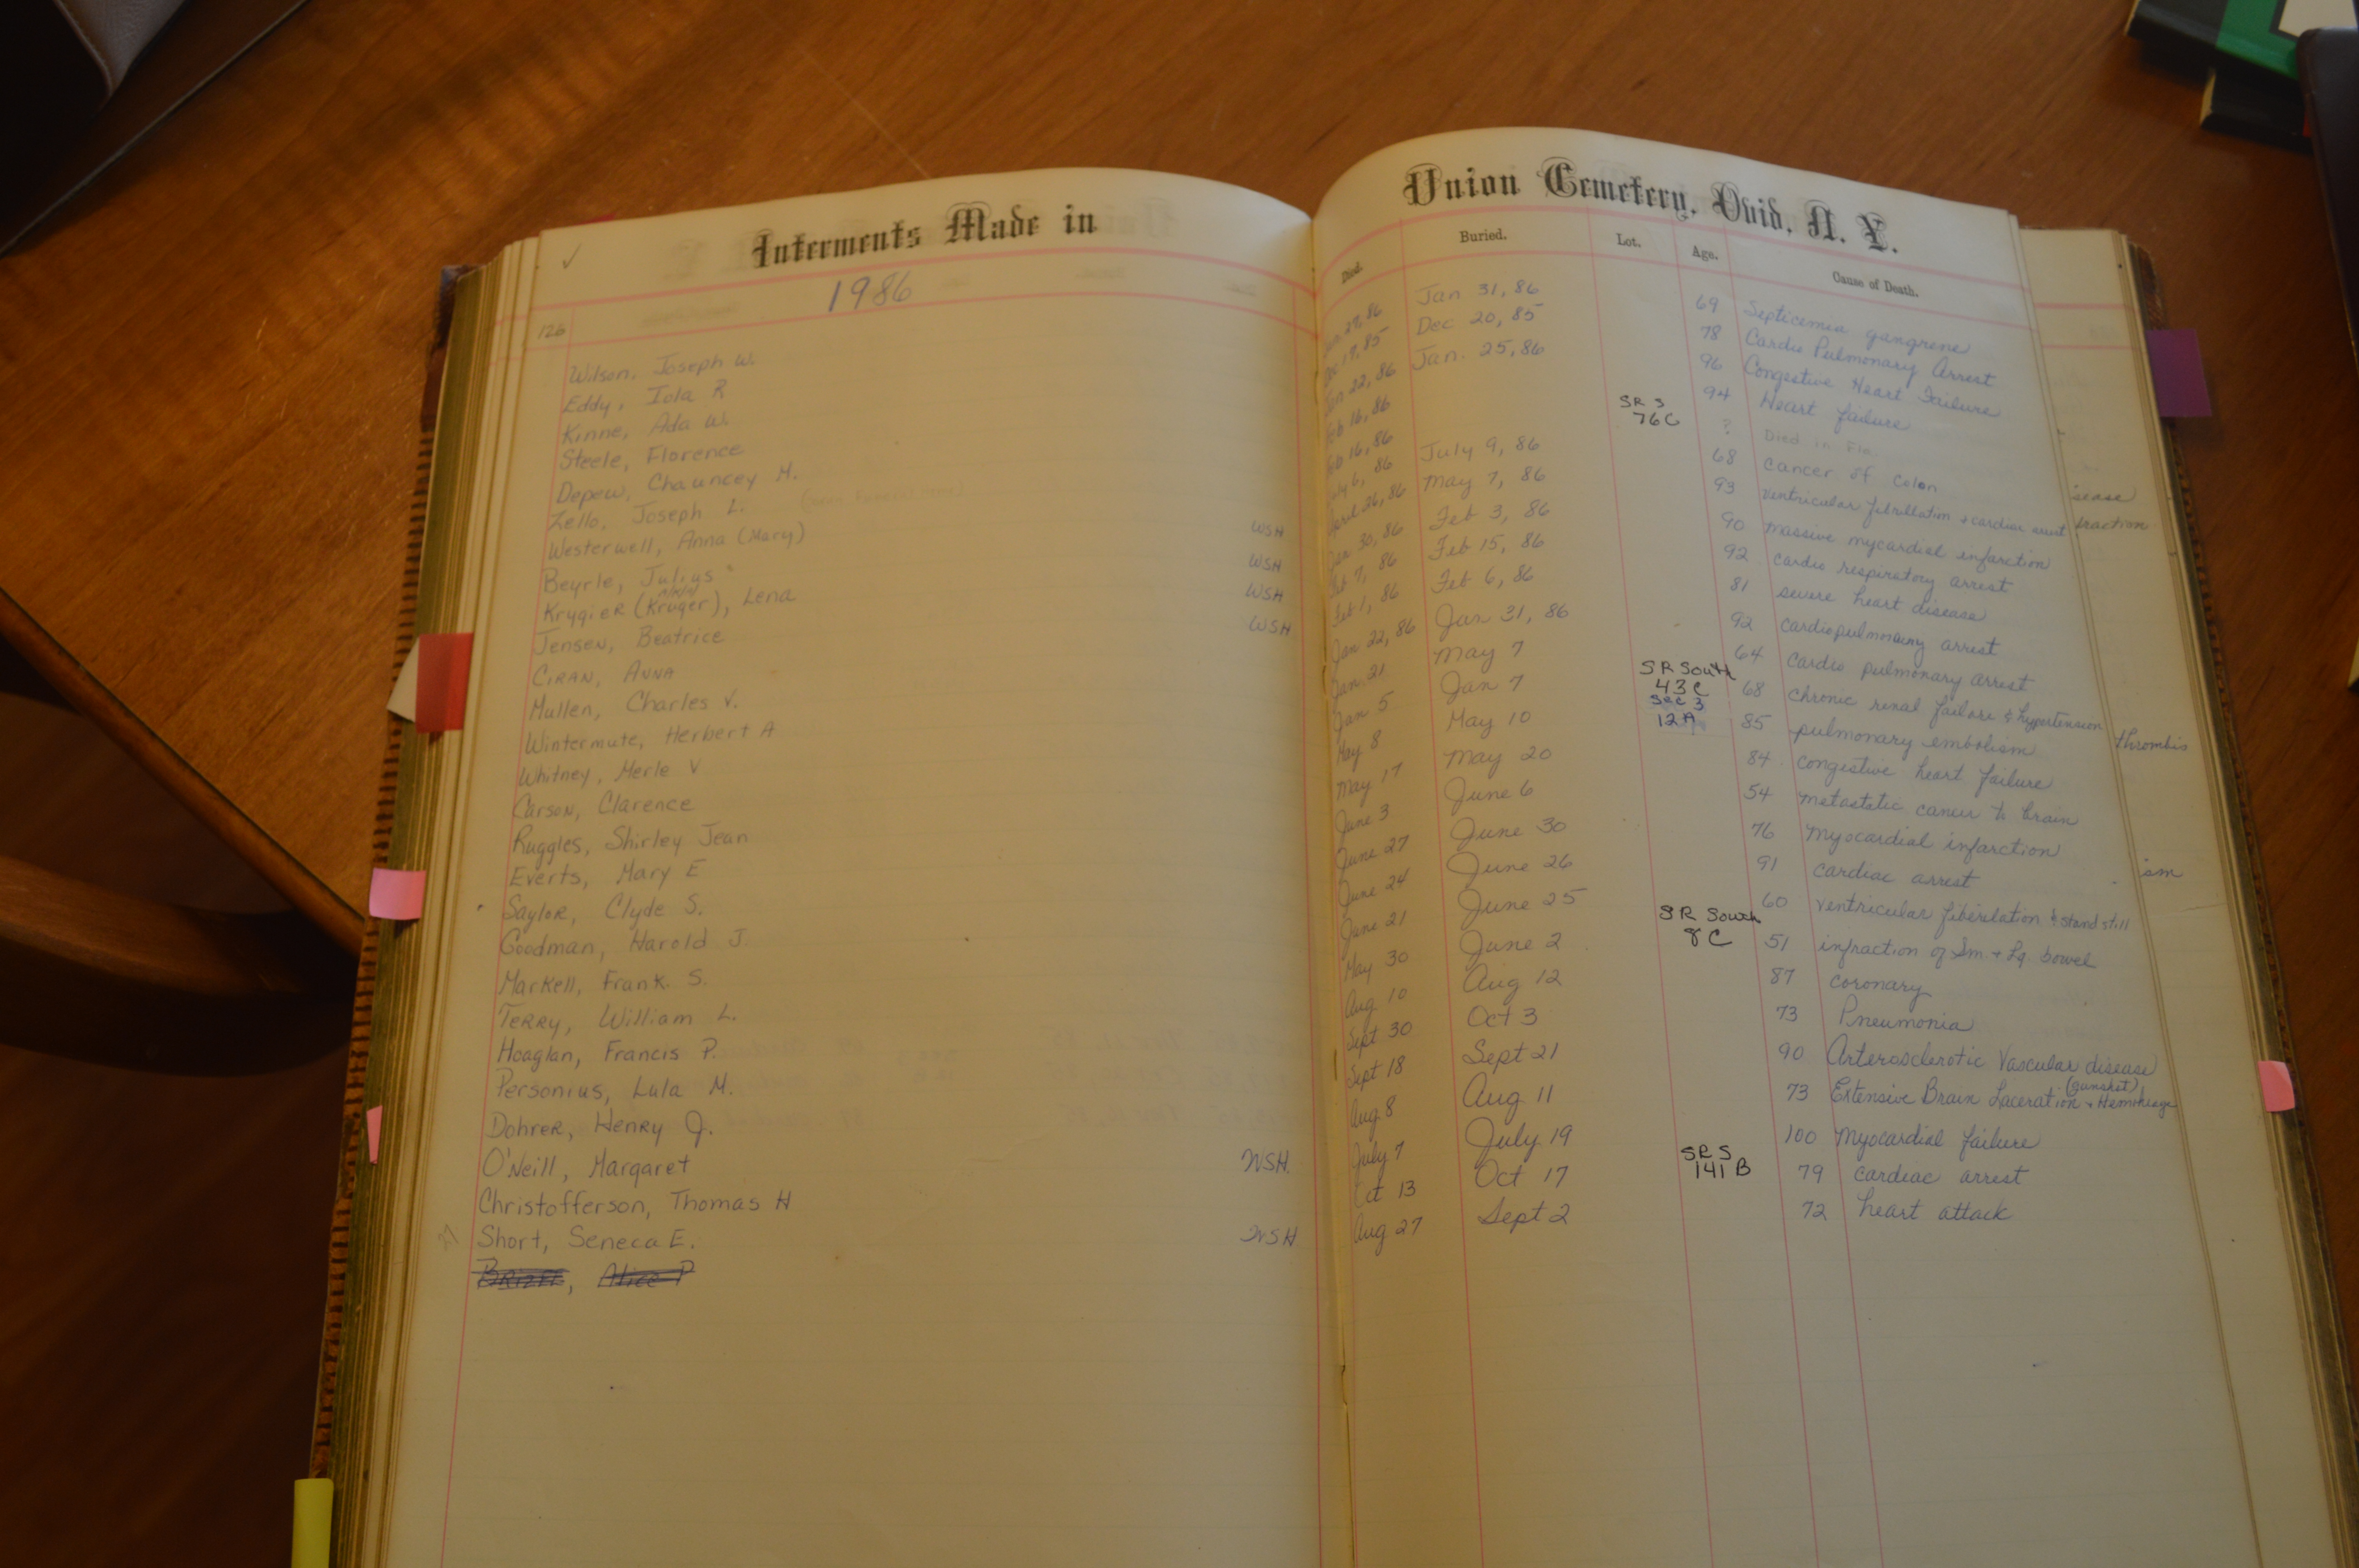 Interments Made in
1986
126
Wilson, Joseph W.
Eddy, Iola R
Kinne, Ada W.
Steele, Florence
Depew, Chauncey M.
Zello, Joseph L.
Westerwell, Anna (Mary) WSH
Beyrle, Julius WSH
Krygier (Kruger), Lena WSH
Jensen, Beatrice WSH
Ciran, Anna
Mullen, Charles V.
Wintermute, Herbert A
Whitney, Merle V
Carson, Clarence
Ruggles, Shirley Jean
Everts, Mary E
Saylor, Clyde S.
Goodman, Harold J.
Markell, Frank S.
Terry, William L.
Hoaglan, Francis P.
Personius, Lula M.
Dohrer, Henry J.
O'Neill, Margaret WSH.
Christofferson, Thomas H
27 Short, Seneca E. WSH
Alice P
Union Cemetery, Ovid, N. Y.
Died. Buried. Lot. Age. Cause of Death.
27, 86 Jan 31, 86 69 Septicemia gangrene
Dec 19, 85 Dec 20, 85 78 Cardio Pulmonary Arrest
Jan 22, 86 Jan. 25, 86 96 Congestive Heart Failure
Feb 16, 86 94 Heart failure
Feb 16, 86 SR S 76C ? Died in Fla.
July 6, 86 July 9, 86 68 cancer of colon
April 26, 86 May 7, 86 93 ventricular fibrillation & cardiac arrest
Jan 30, 86 Feb 3, 86 90 massive mycardial infarction
Feb 7, 86 Feb 15, 86 92 cardio respiratory arrest
Feb 1, 86 Feb 6, 86 81 severe heart disease
Jan 22, 86 Jan 31, 86 92 cardiopulmonary arrest
Jan. 21 May 7 64 cardio pulmonary arrest
Jan 5 Jan 7 SR South 43C 68 chronic renal failure & hypertension
May 8 May 10 Sec 3 12A 85 pulmonary embolism
May 17 May 20 84 congestive heart failure
June 3 June 6 54 metastatic cancer to brain
June 27 June 30 76 myocardial infarction
June 24 June 26 91 cardiac arrest
June 21 June 25 60 ventricular fiberilation & stand still
May 30 June 2 SR South 8C 51 infraction of Sm + Lg bowel
Aug 10 Aug 12 87 coronary
Sept 30 Oct 3 73 Pneumonia
Sept 18 Sept 21 90 Arterosclerotic Vascular disease
Aug 8 Aug 11 73 Extensive Brain Laceration (gunshot) + Hemorrhage
July 7 July 19 100 myocardial failure
Oct 13 Oct 17 SR S 141 B 79 cardiac arrest
Aug 27 Sept 2 72 heart attack
isease
fraction
thrombis
ism